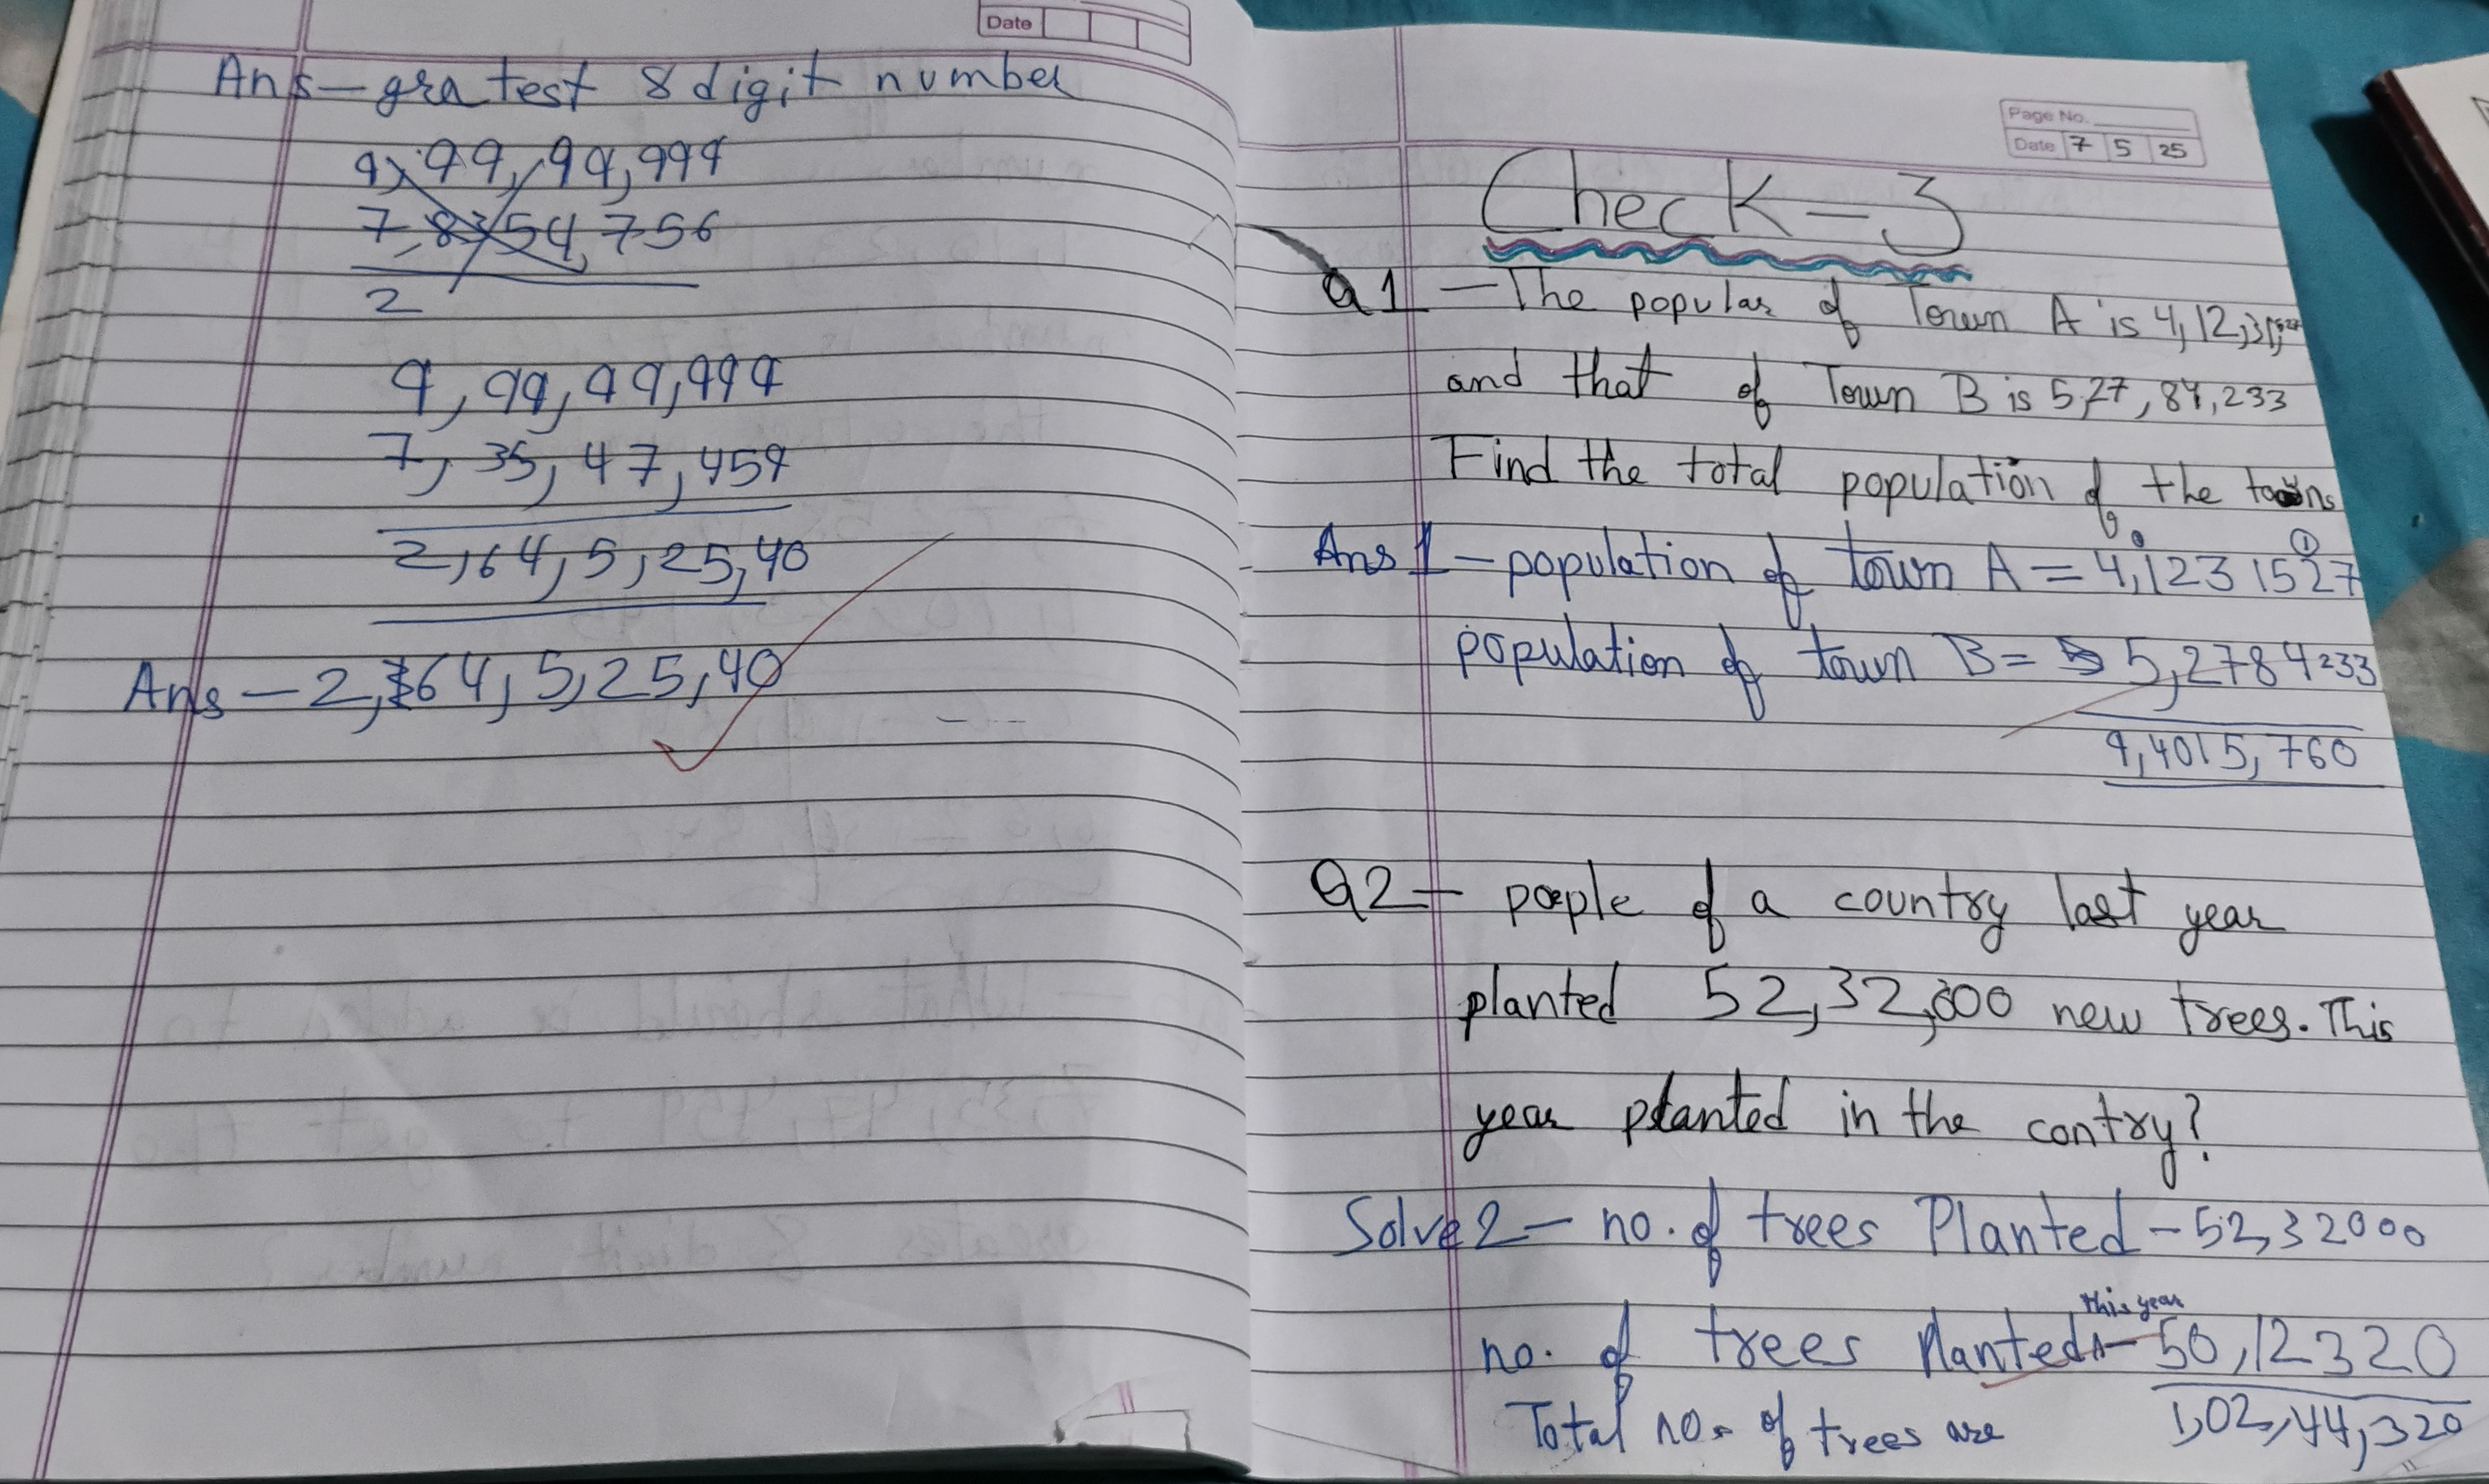 Date
Ans - gratest 8 digit number
9,99,99,999
7,8354,756
2
9,99,99,999
7,35,47,459
2,64,5,25,40
Ans - 2,64,5,25,40
Page No.
Date 7 5 25
Check - 3
Q1 - The popular of Town A is 4,12,31,527
and that of Town B is 5,27,84,233
Find the total population of the towns
Ans 1 - population of town A = 4,1231527
1
population of town B = 5,2784233
9,4015,760
Q2 - people of a country last year
planted 52,32,000 new trees. This
year planted in the contry?
Solve 2 - no. of trees Planted - 52,32000
this year
no. of trees Planted - 50,12320
Total no. of trees are 1,02,44,320